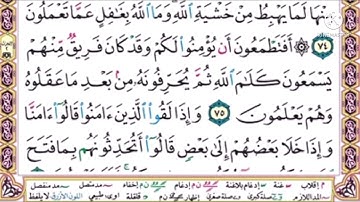 مِنْهَا لَمَا يَهْبِطُ مِنْ خَشْيَةِ ٱللَّهِ وَمَا ٱللَّهُ بِغَٰفِلٍ عَمَّا تَعْمَلُونَ
٧٤ ۞ أَفَتَطْمَعُونَ أَن يُؤْمِنُوا۟ لَكُمْ وَقَدْ كَانَ فَرِيقٌ مِّنْهُمْ
يَسْمَعُونَ كَلَٰمَ ٱللَّهِ ثُمَّ يُحَرِّفُونَهُۥ مِنۢ بَعْدِ مَا عَقَلُوهُ
وَهُمْ يَعْلَمُونَ ٧٥ وَإِذَا لَقُوا۟ ٱلَّذِينَ ءَامَنُوا۟ قَالُوٓا۟ ءَامَنَّا
وَإِذَا خَلَا بَعْضُهُمْ إِلَىٰ بَعْضٍ قَالُوٓا۟ أَتُحَدِّثُونَهُم بِمَا فَتَحَ